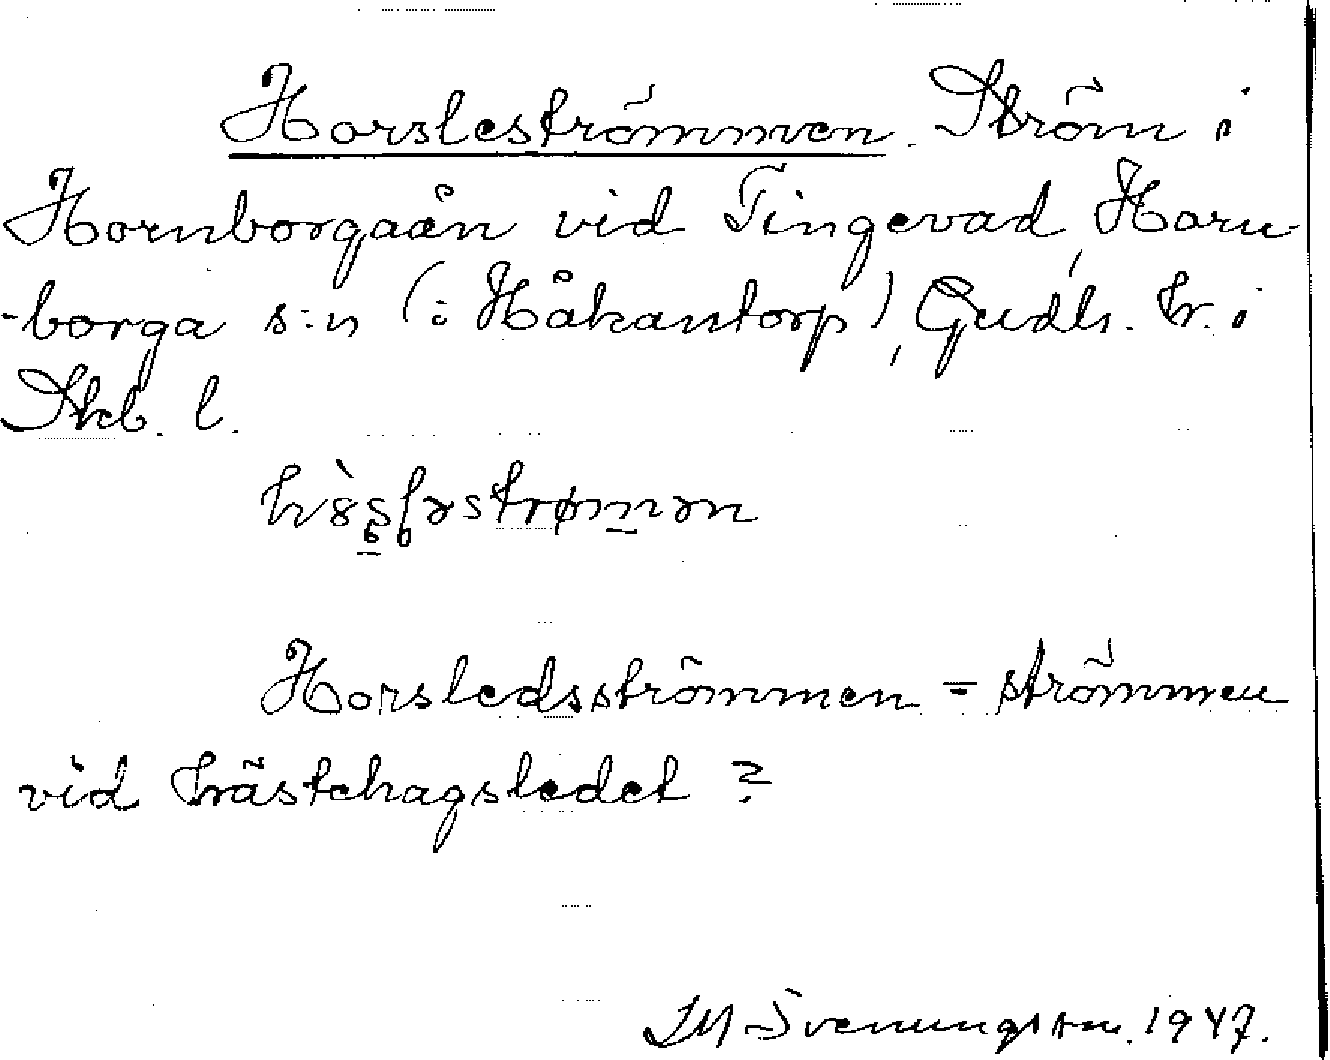 Horsleströmmen. Ström i
Hornborgaån vid Tingevad, Horn-
-borga s:n (: Håkantorp), Gudh. hr. i
Skb. l.
Horsledsströmmen = strömmen
vid hästehagsledet ?
Svenungsson. 1947.